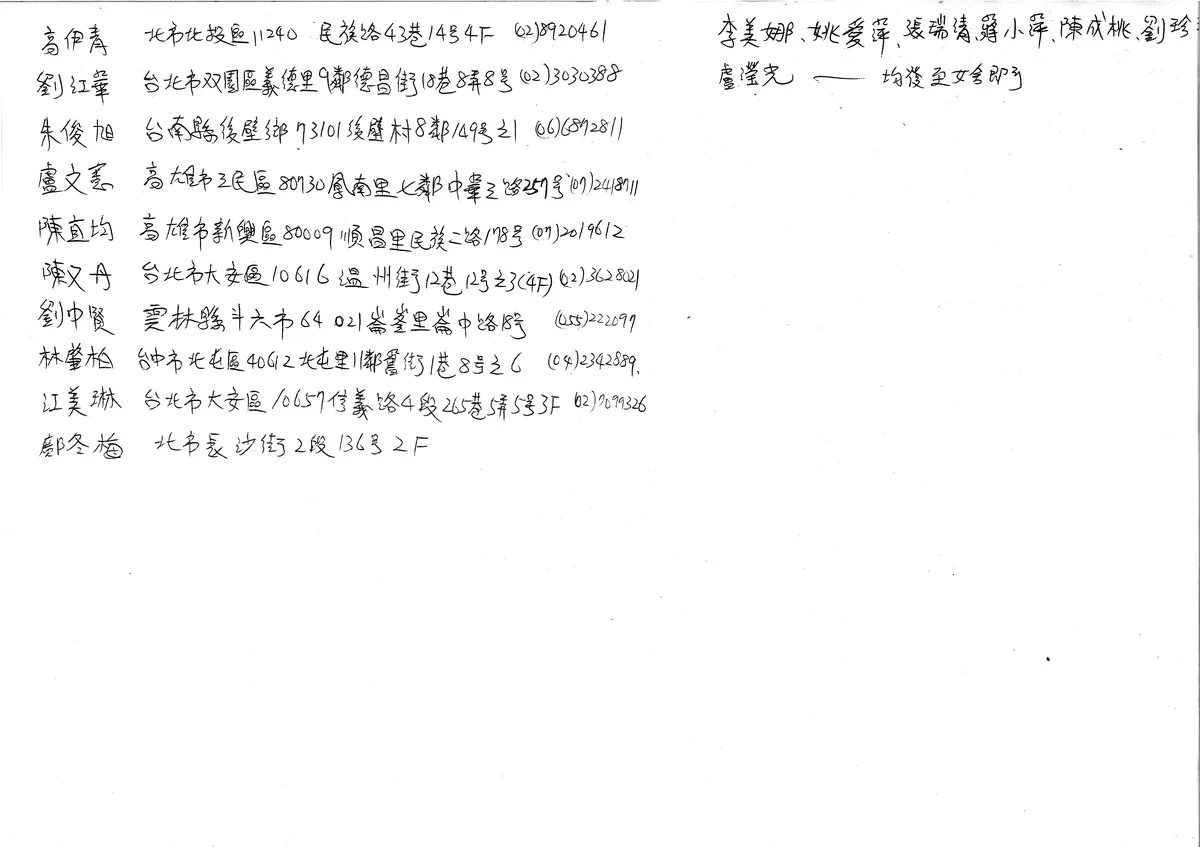 高伊青 北市北投區11240 民族路43巷14号4F (02)8920461
劉江華 台北市双園區義德里9鄰德昌街18巷8弄8号(02)3030388
朱俊旭 台南縣後壁鄉73101後壁村8鄰149号之1 (06)6872811
盧文憲 高雄市三民區80730鳳南里七鄰中華三路257号(07)2418711
陳宜均 高雄市新興區80009順昌里民族二路178号(07)2019612
陳又丹 台北市大安區10616溫州街12巷12号之3(4F)(02)3628021
劉中賢 雲林縣斗六市64021崙峯里崙中路18号 (055)222097
林肇柏 台中市北屯區40612北屯里11鄰舊街1巷8号之6 (04)2342889
江美琳 台北市大安區10657信義路4段265巷5弄5号3F (02)7099326
鄭冬梅 北市長沙街2段136号2F
李美娜、姚愛萍、張瑞清、蔣小萍、陳成桃、劉珍
盧瀅光 —— 均後至女舍即可